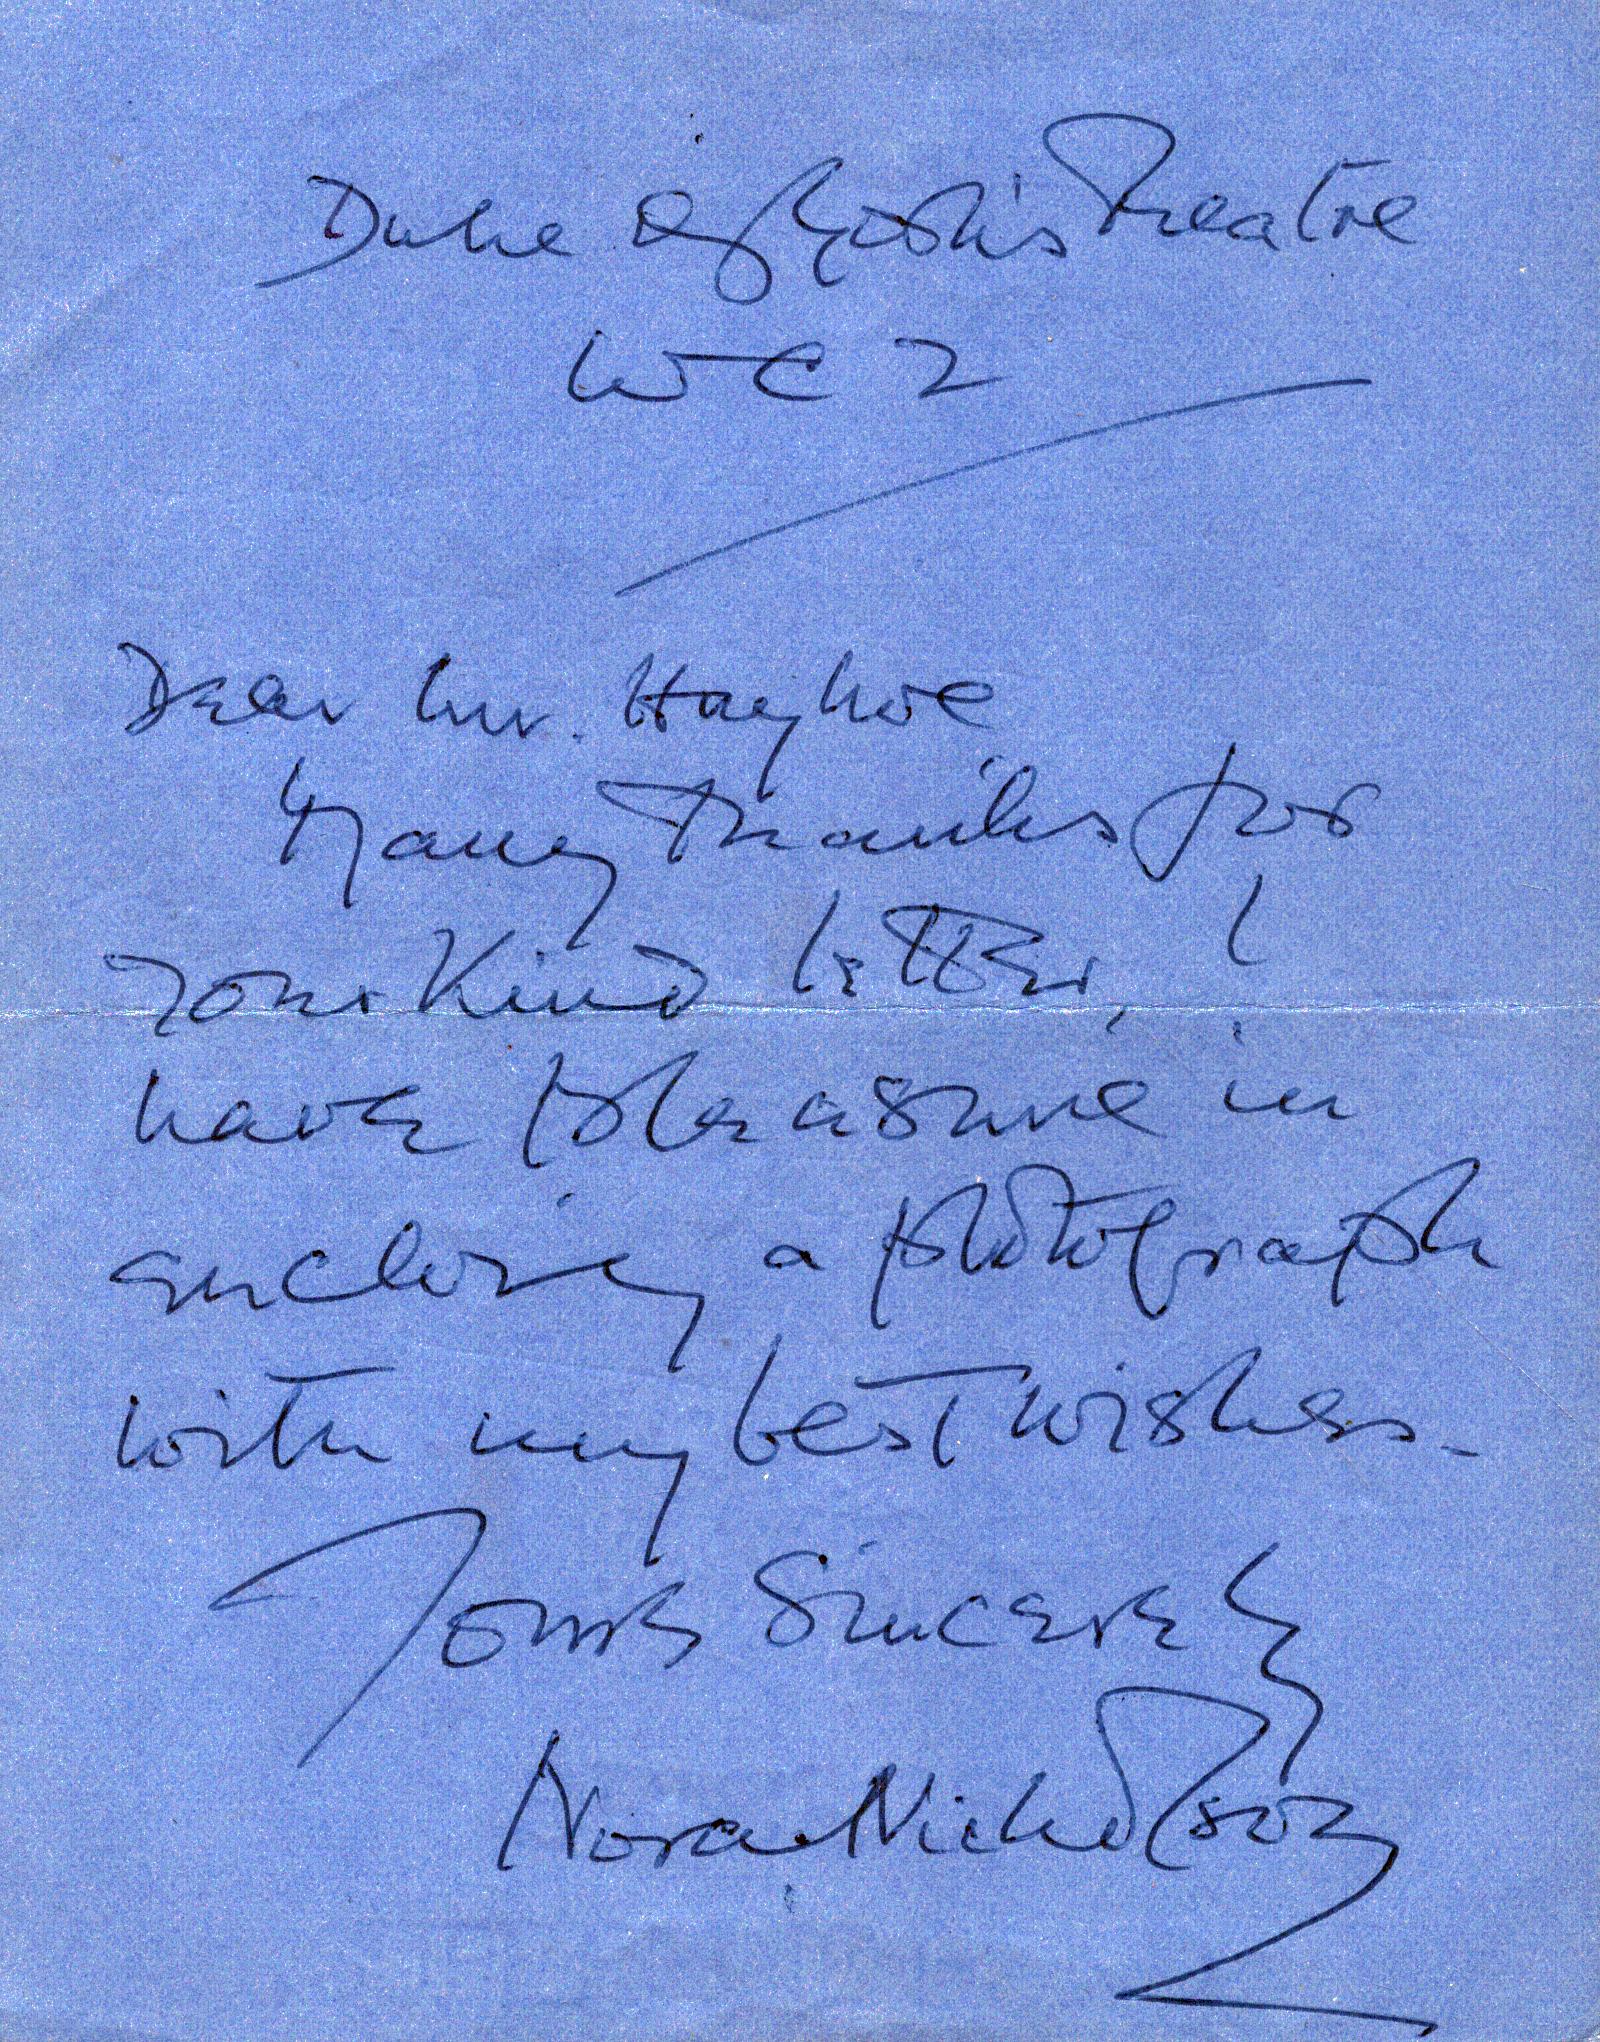 Duke of York's Theatre
WC2
Dear Mr. Hayhoe
Many thanks for
your kind letter, I
have pleasure in
enclosing a photograph
with my best wishes.
Yours Sincerely
Nora Nicholson